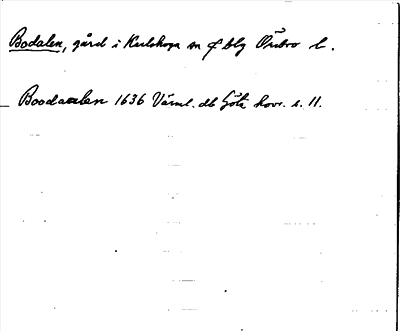 Bodalen, gård i Karlskoga sn o blg Örebro l.
Boodaalen 1636 Värml. db Göta hovr. s. 11.